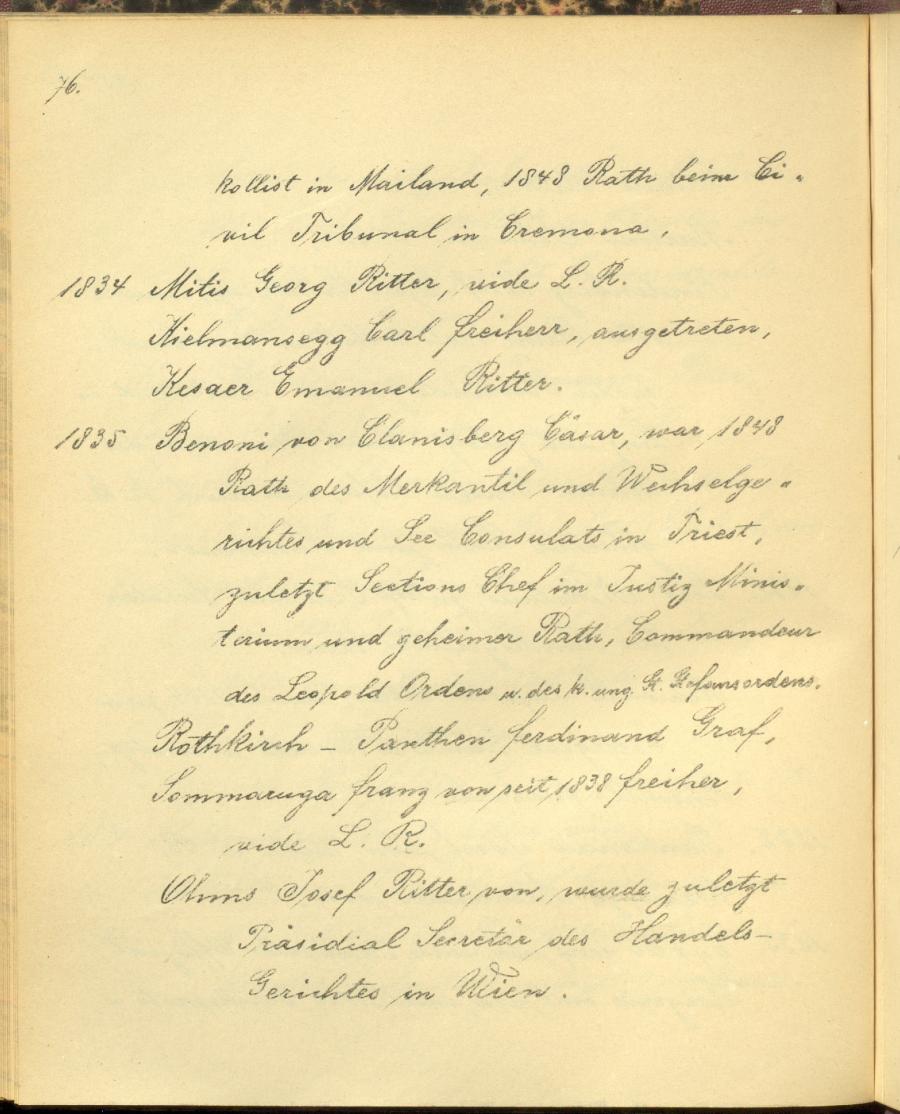 76.
kollist in Mailand, 1848 Rath beim Ci-
vil Tribunal in Cremona.
1834 Mitis Georg Ritter, vide L. R.
Kielmansegg Carl Freiherr, ausgetreten,
Kesaer Emanuel Ritter.
1835 Benoni von Clanisberg Cäsar, war 1848
Rath des Merkantil und Wechselge-
richtes und See Consulats in Triest,
zuletzt Sections Chef im Justiz Minis-
terium und geheimer Rath, Commandeur
des Leopold Ordens u. des k. ung. St. Stefansordens.
Rothkirch - Panthen Ferdinand Graf,
Sommaruga Franz von seit 1838 Freiher,
vide L. R.
Ohms Josef Ritter von, wurde zuletzt
Präsidial Secretär des Handels-
Gerichtes in Wien.